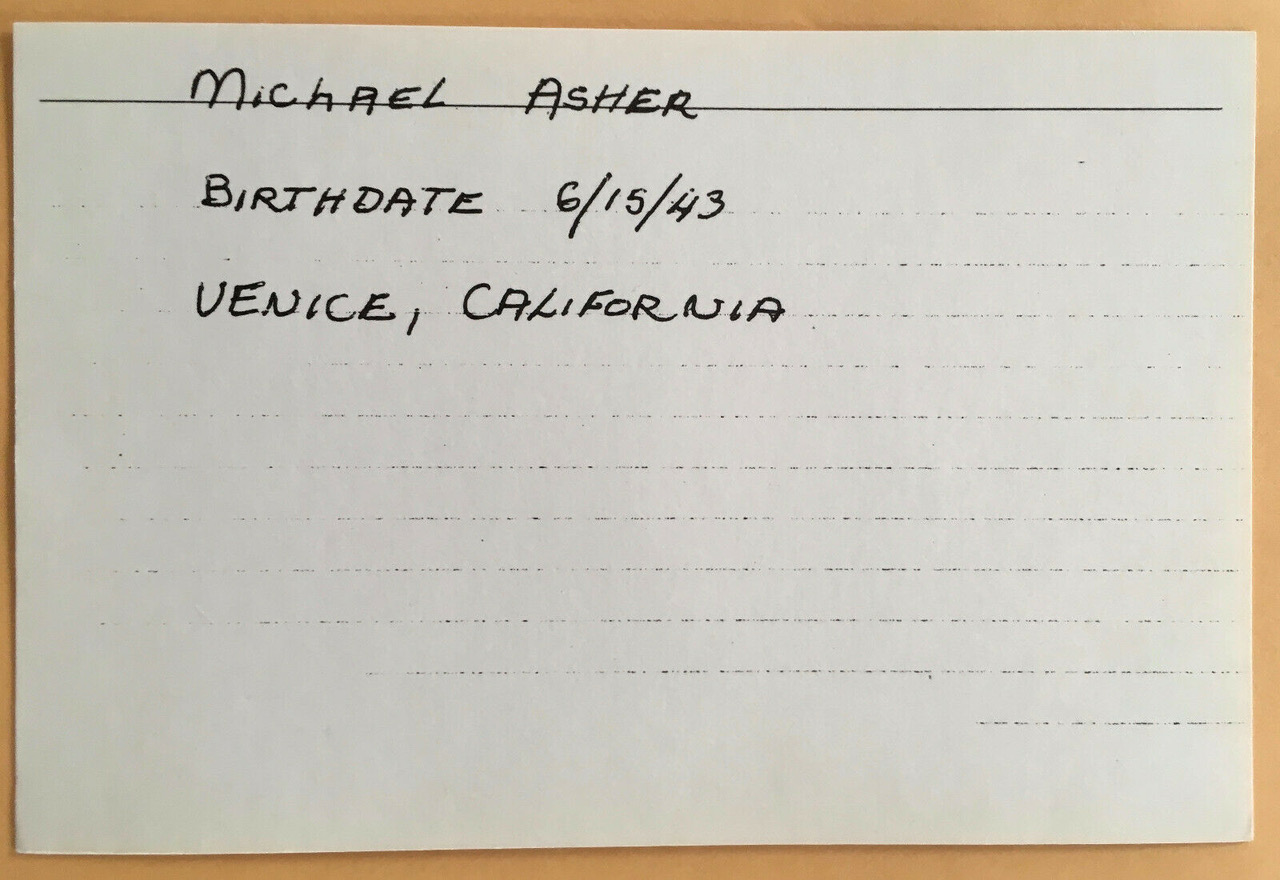 MiCHAEL ASHER
BIRTHDATE 6/15/43
VENICE, CALIFORNIA